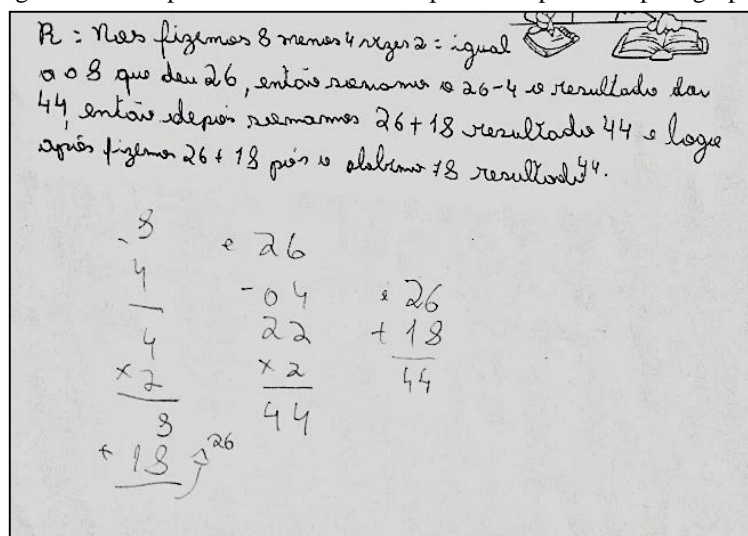 R: Nos fizemos 8 menos 4 vezes 2 = igual
a o 8 que deu 26, então somamos o 26-4 o resultado dar
44, então depois somamos 26 + 18 resultado 44 e logo
após fizemos 26 + 18 pois o 18 resultado 44.
- 8
4
4
x 2
8
+ 18 26
e 26
- 04
22
x 2
44
e 26
+ 18
44